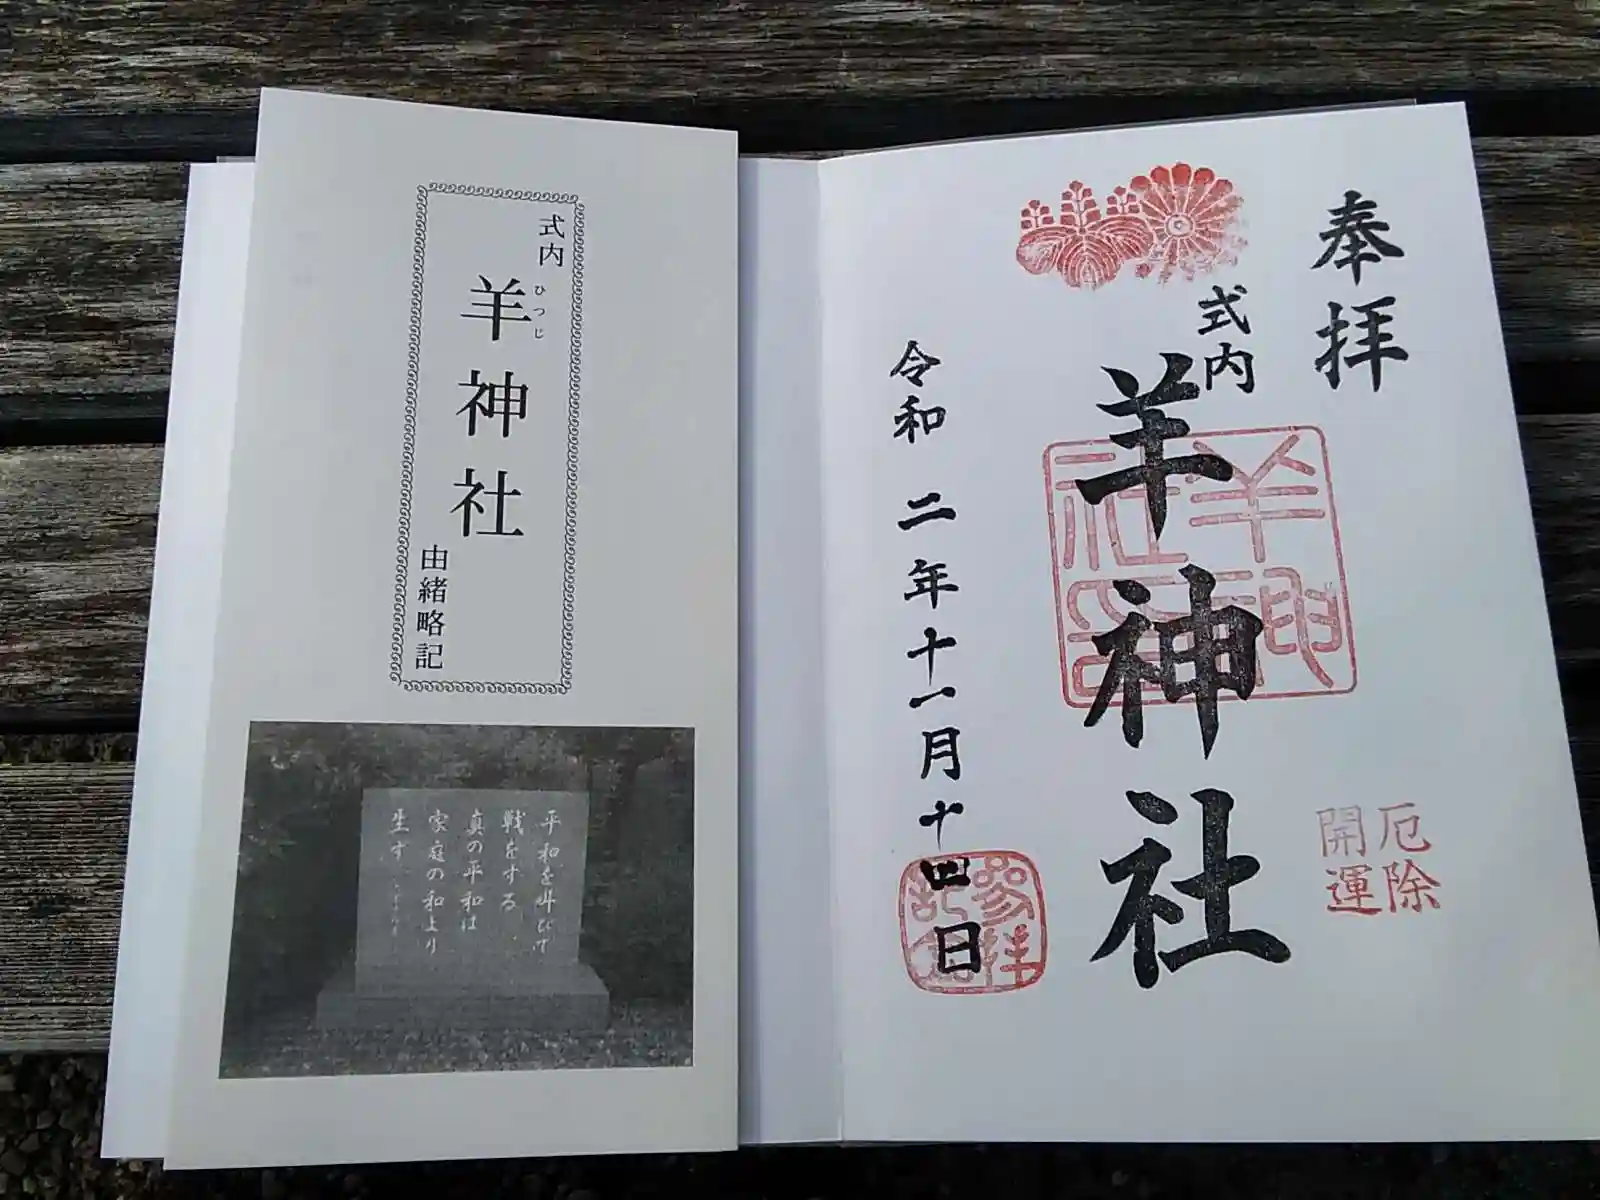 式内
羊神社
ひつじ
由緒略記
平和を叫びて
戦をする
真の平和は
家庭の和より
生ず
奉拝
式内
羊神社
令和二年十一月十四日
羊神
社
厄除
開運
参拝